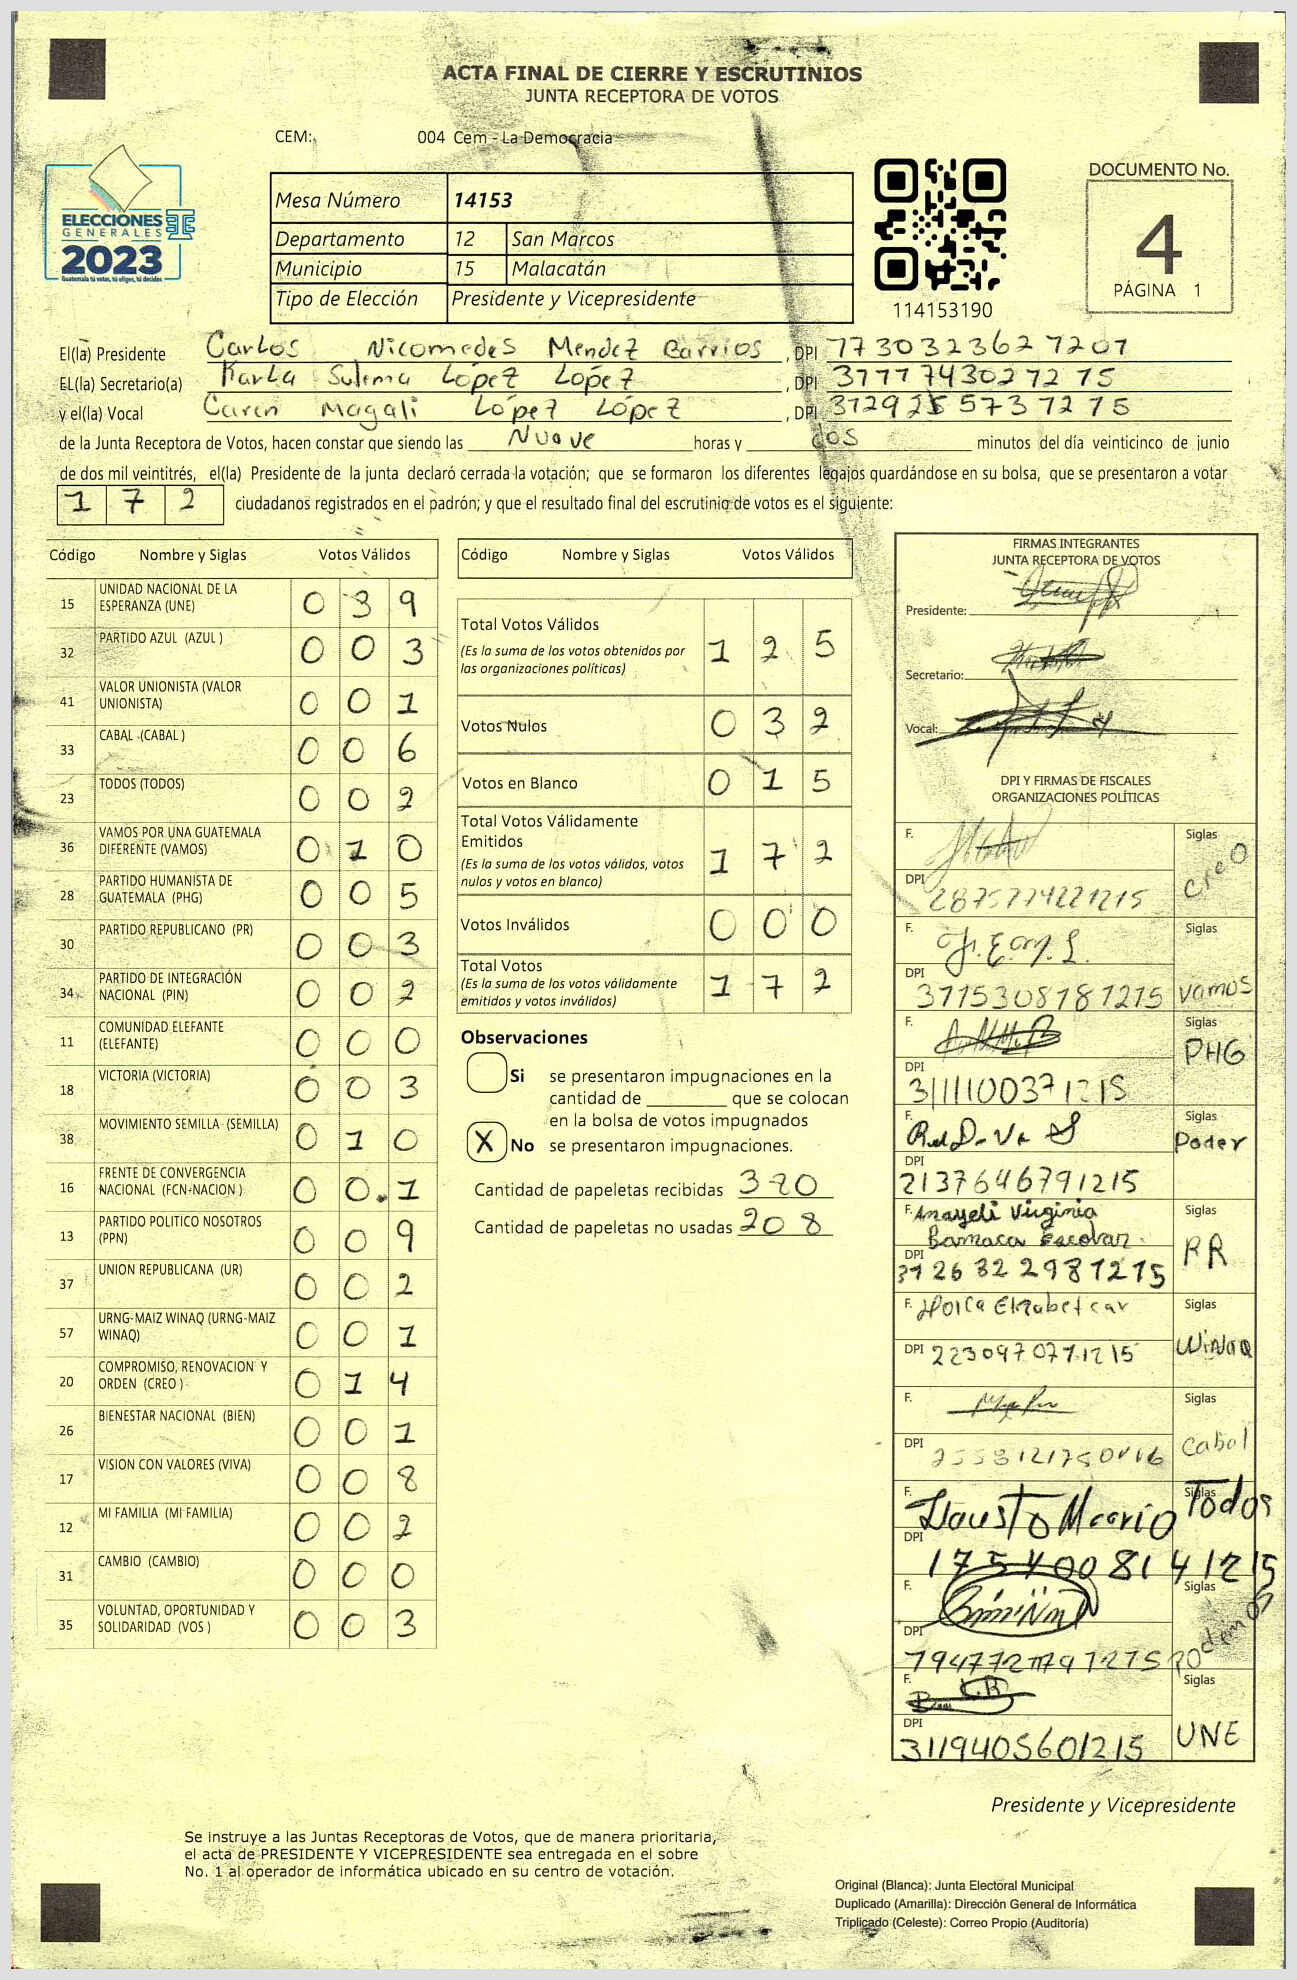 ACTA FINAL DE CIERRE Y ESCRUTINIOS
JUNTA RECEPTORA DE VOTOS
CEM: 004 Cem - La Democracia
ELECCIONES
GENERALES
2023
Guatemala tú votas, tú eliges, tú decides
Mesa Número 14153
Departamento 12 San Marcos
Municipio 15 Malacatán
Tipo de Elección Presidente y Vicepresidente
114153190
DOCUMENTO No.
4
PÁGINA 1
El(la) Presidente Carlos Nicomedes Mendez Barrios, DPI 7730323627207
EL(la) Secretario(a) Karla Sulema López López, DPI 3777743027275
y el(la) Vocal Caren Magali López López, DPI
de la Junta Receptora de Votos, hacen constar que siendo las Nueve horas y dos minutos del día veinticinco de junio
de dos mil veintitrés, el(la) Presidente de la junta declaró cerrada la votación; que se formaron los diferentes legajos guardándose en su bolsa, que se presentaron a votar
172 ciudadanos registrados en el padrón; y que el resultado final del escrutinio de votos es el siguiente:
Código Nombre y Siglas Votos Válidos
15 UNIDAD NACIONAL DE LA ESPERANZA (UNE) 039
32 PARTIDO AZUL (AZUL ) 003
41 VALOR UNIONISTA (VALOR UNIONISTA) 001
33 CABAL (CABAL ) 006
23 TODOS (TODOS) 002
36 VAMOS POR UNA GUATEMALA DIFERENTE (VAMOS) 010
28 PARTIDO HUMANISTA DE GUATEMALA (PHG) 005
30 PARTIDO REPUBLICANO (PR) 003
34 PARTIDO DE INTEGRACIÓN NACIONAL (PIN) 002
11 COMUNIDAD ELEFANTE (ELEFANTE) 000
18 VICTORIA (VICTORIA) 003
38 MOVIMIENTO SEMILLA (SEMILLA) 010
16 FRENTE DE CONVERGENCIA NACIONAL (FCN-NACION ) 001
13 PARTIDO POLITICO NOSOTROS (PPN) 009
37 UNION REPUBLICANA (UR) 002
57 URNG-MAIZ WINAQ (URNG-MAIZ WINAQ) 001
20 COMPROMISO, RENOVACION Y ORDEN (CREO ) 014
26 BIENESTAR NACIONAL (BIEN) 001
17 VISION CON VALORES (VIVA) 008
12 MI FAMILIA (MI FAMILIA) 002
31 CAMBIO (CAMBIO) 000
35 VOLUNTAD, OPORTUNIDAD Y SOLIDARIDAD (VOS ) 003
Código Nombre y Siglas Votos Válidos
Total Votos Válidos 125
(Es la suma de los votos obtenidos por
las organizaciones políticas)
Votos Nulos 032
Votos en Blanco 015
Total Votos Válidamente
Emitidos 172
(Es la suma de los votos válidos, votos
nulos y votos en blanco)
Votos Inválidos 000
Total Votos 172
(Es la suma de los votos válidamente
emitidos y votos inválidos)
Observaciones
Si se presentaron impugnaciones en la
cantidad de ________ que se colocan
en la bolsa de votos impugnados
X No se presentaron impugnaciones.
Cantidad de papeletas recibidas 380
Cantidad de papeletas no usadas 208
FIRMAS INTEGRANTES
JUNTA RECEPTORA DE VOTOS
Presidente:
Secretario:
Vocal:
DPI Y FIRMAS DE FISCALES
ORGANIZACIONES POLÍTICAS
F. Siglas creo
DPI
F. J.E.M.L. Siglas vamos
DPI 3715308781215
F. Siglas PHG
DPI 3111100371215
F. Siglas Poder
DPI 2137646791215
F. Anayeli Virginia Siglas PR
Barmaca Escobar
DPI 3126322981215
F. Siglas WiNaq
DPI 2230970771215
F. Siglas Cabal
DPI
F. Fausto Mario Siglas Todos
DPI 1754008141215
F. Siglas Podemos
DPI
F. Siglas UNE
DPI 3119405601215
Presidente y Vicepresidente
Se instruye a las Juntas Receptoras de Votos, que de manera prioritaria,
el acta de PRESIDENTE Y VICEPRESIDENTE sea entregada en el sobre
No. 1 al operador de informática ubicado en su centro de votación.
Original (Blanca): Junta Electoral Municipal
Duplicado (Amarilla): Dirección General de Informática
Triplicado (Celeste): Correo Propio (Auditoría)